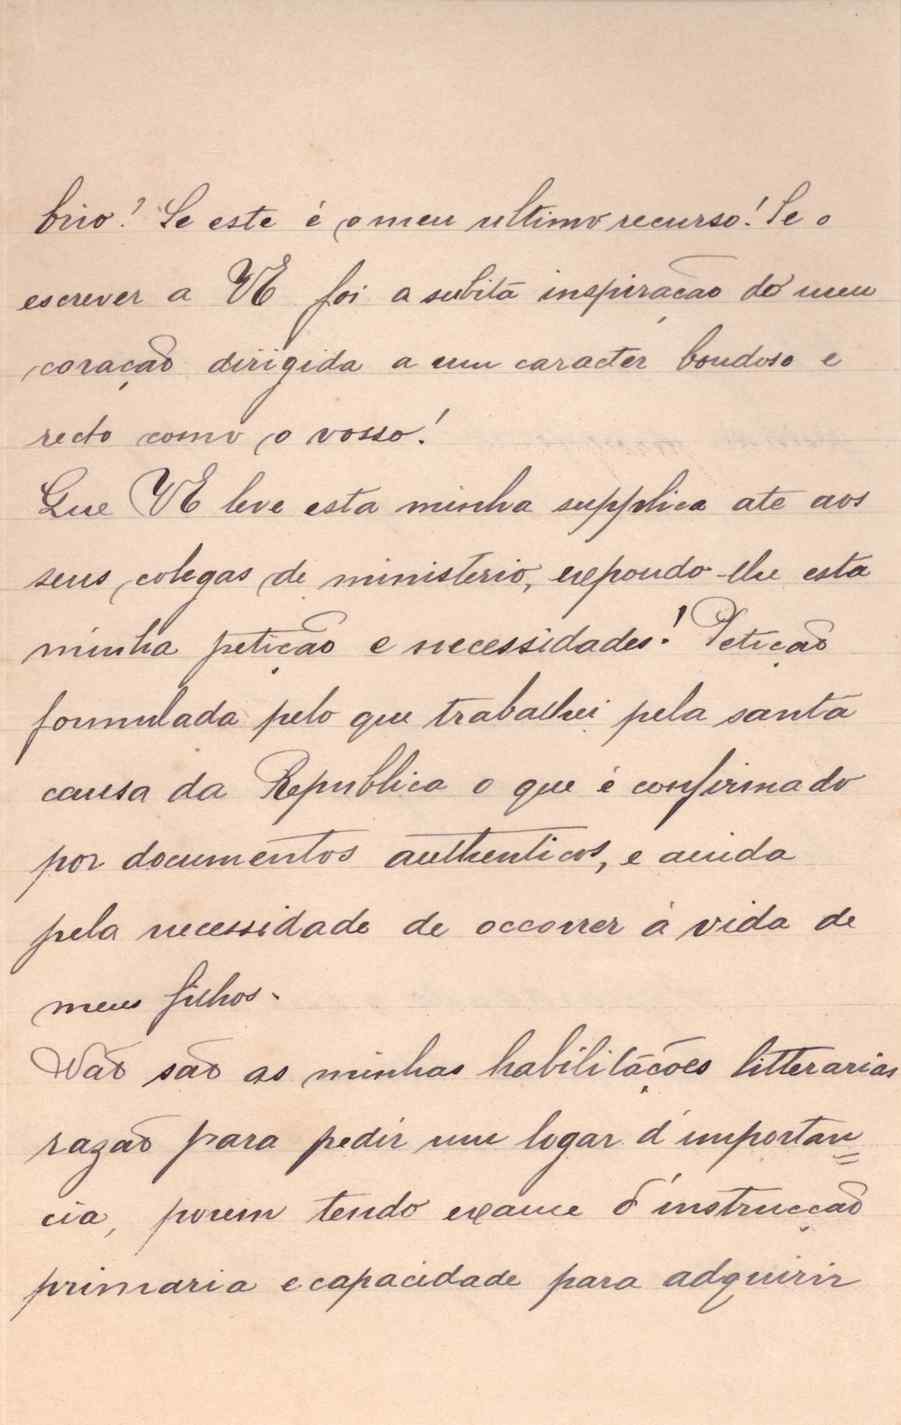 brio! Se este é o meu ultimo recurso! Se o
escrever a VE foi a subita inspiração do meu
coração dirigida a um caracter bondoso e
recto como o vosso!
Que VE leve esta minha supplica ate aos
seus colegas de ministerio, expondo-lhe esta
minha petição e necessidades! Petição
formulada pelo que trabalhei pela santa
causa da Republica o que é confirmado
por documentos authenticos, e ainda
pela necessidade de occorrer á vida de
meus filhos.
Não são as minhas habilitações litterarias
razão para pedir um logar d'importan=
cia, porem tendo exame d'instrucção
primaria e capacidade para adquirir